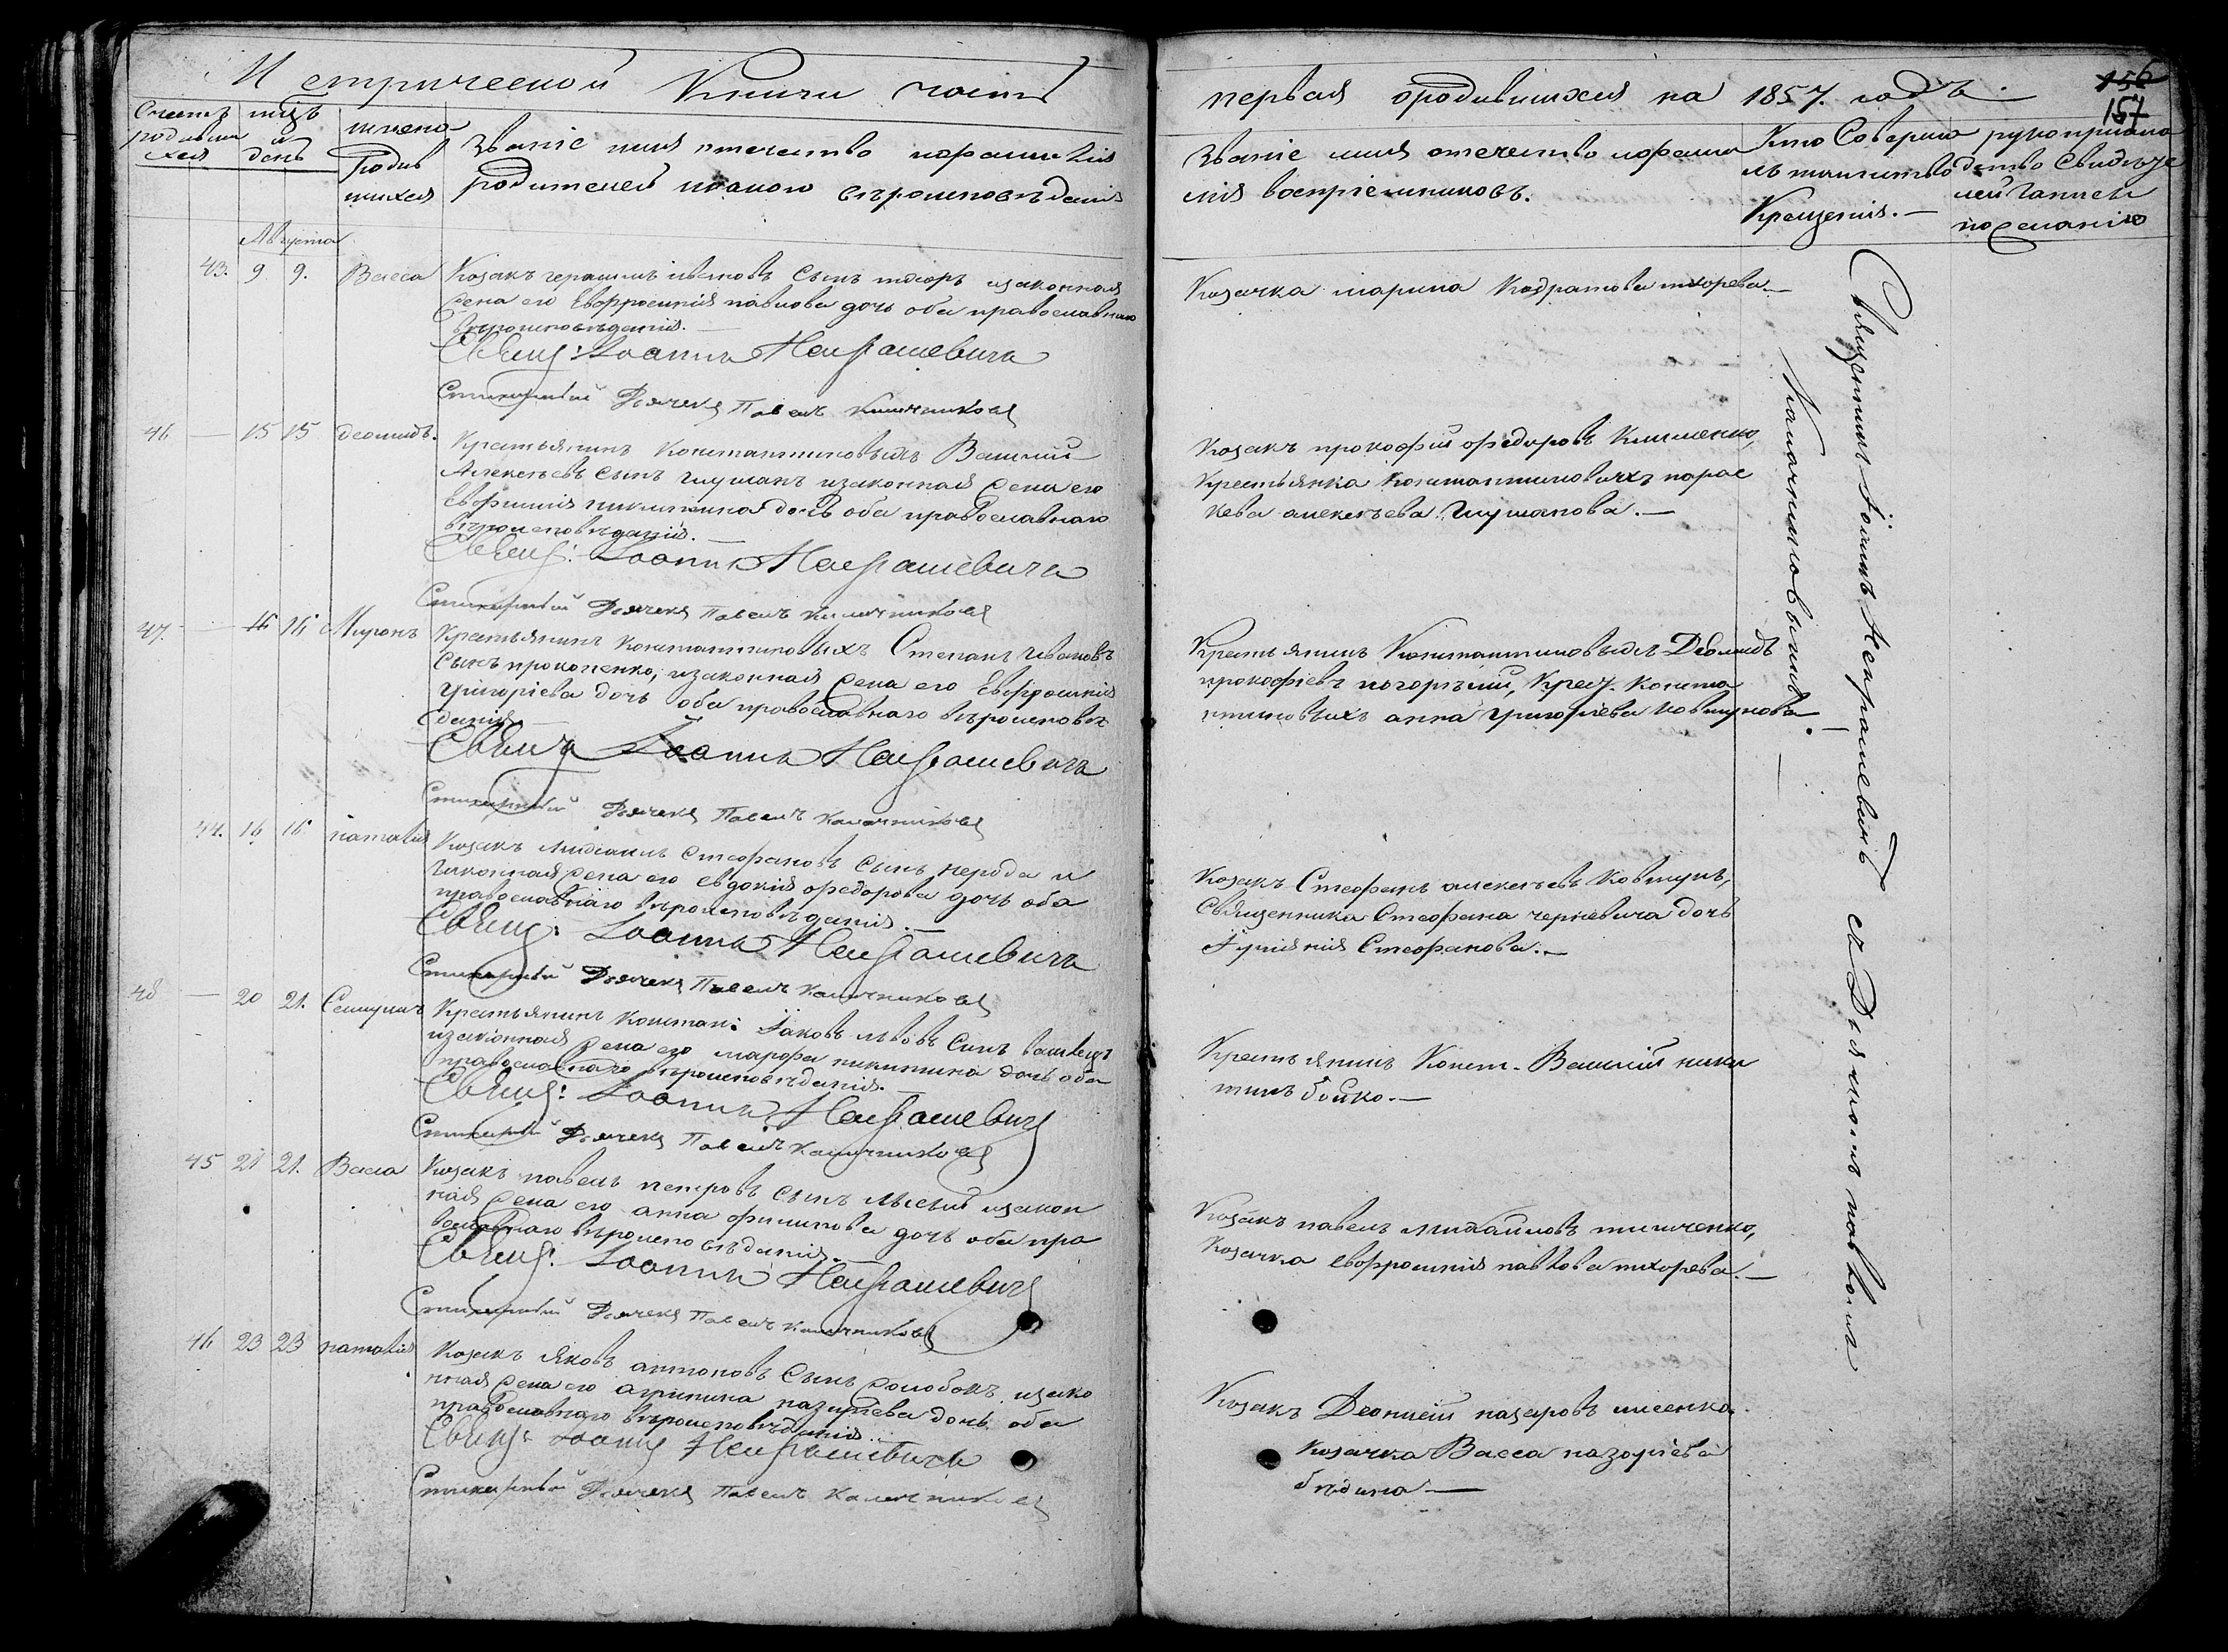 Метрической Книги часть
первая о родившихся на 1857. годъ.
156
157
Счетъ родившихся
мцъ и день
имена родившихся
Званіе имя отечество и фамилія
родителей и какого вѣроисповѣданія
Званіе имя отечество и фамилія
воспріемниковъ.
Кто Совершалъ таинство
Крещенія.—
рукоприкладство Свидѣтелей Записи
по желанію
Августа
43. 9 9. Васса
Козакъ герасимъ ивановъ Сынъ тхоръ изаконная
жена его Евфросинія павлова дочь оба православнаго
вѣроисповѣданія.—
Свящ: Іоаннъ
Стихарный Дьячекъ Павелъ
Козачка марина Кодратова тхорева.—
46 — 15 15 Деомидъ.
Крестьянинъ Константиновыхъ Василій
Алексѣевъ Сынъ изаконная жена его
Евфимія никитина дочь оба православнаго
вѣроисповѣданія.—
Свящ: Іоаннъ
Стихарный Дьячекъ Павелъ
Козакъ прокофій федоровъ Клименко,
Крестьянка Константиновыхъ парас
кева алексѣева.—
47. — 16 16 Миронъ
Крестьянинъ Константиновыхъ Степанъ Ивановъ
Сынъ прокопенко, изаконная жена его Евфросинія
григоріева дочь оба православнаго вѣроисповѣ
данія—
Священ Іоаннъ
Стихарный Дьячекъ Павелъ
Крестьянинъ Константиновыхъ Деомидъ
прокофіевъ погорѣлий, Крес. Конста
нтиновыхъ анна григоріева Ковтунова.
44. 16 16 наталія
Козакъ Стефановъ Сынъ и
законная жена его евдокія федорова дочь оба
православнаго вѣроисповѣданія.—
Свящ: Іоаннъ
Стихарный Дьячекъ Павелъ
Козакъ Стефанъ алексѣевъ Ковтунъ,
Священника Стефана дочь
Іуліянія Стефанова.—
48 — 20 21.
Крестьянинъ Констан: Іаковъ львовъ Сынъ
изаконная жена его марфа никитина дочь оба
православнаго вѣроисповѣданія.—
Свящ: Іоаннъ
Стихарный Дьячекъ Павелъ
Крестьянинъ Конст. Василій ники
тинъ бойко.—
45 21 21. Васса
Козакъ павелъ петровъ Сынъ изакон
ная жена его анна филипова дочь оба пра
вославнаго вѣроисповѣданія.—
Свящ: Іоаннъ
Стихарный Дьячекъ Павелъ
Козакъ павелъ михайловъ тимченко,
Козачка евфросинія павлова тхорева.—
46 23 23 наталія
Козакъ Яковъ антоновъ Сынъ изако
нная жена его агрипина назаріева дочь оба
православнаго вѣроисповѣданія.
Свящ: Іоаннъ
Стихарный Дьячекъ Павелъ
Козакъ Деонисій назаровъ
Козачка Васса назоріева
бѣдина—
Священникъ Іоаннъ съ Діякономъ павломъ